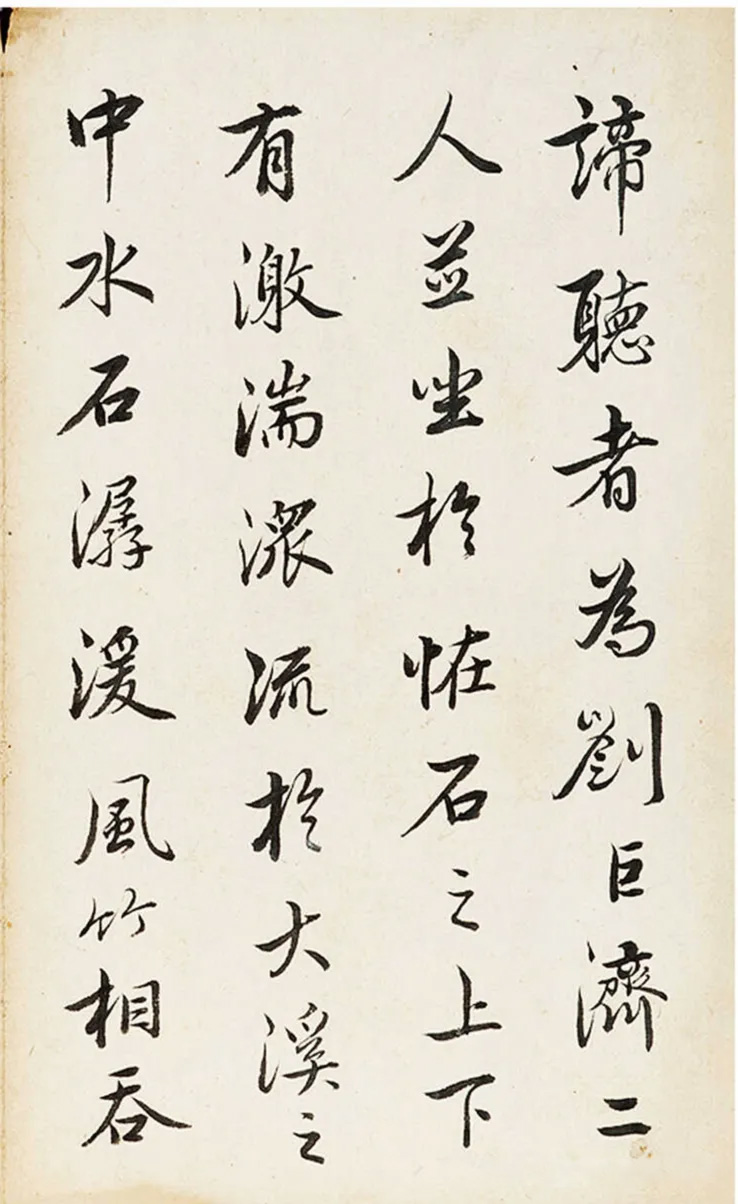 諦聽者為劉巨濟二
人並坐於恠石之上下
有激湍潨流於大溪之
中水石潺湲風竹相吞